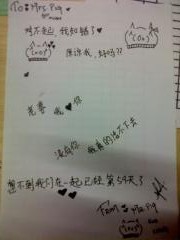 To: Mrs. Pig
对不起, 我知错了♥
原谅我, 好吗??
老婆 我♥你
没有你 我真的活不下去
想不到我们在一起已经 第54天了
From: Mr. Pig